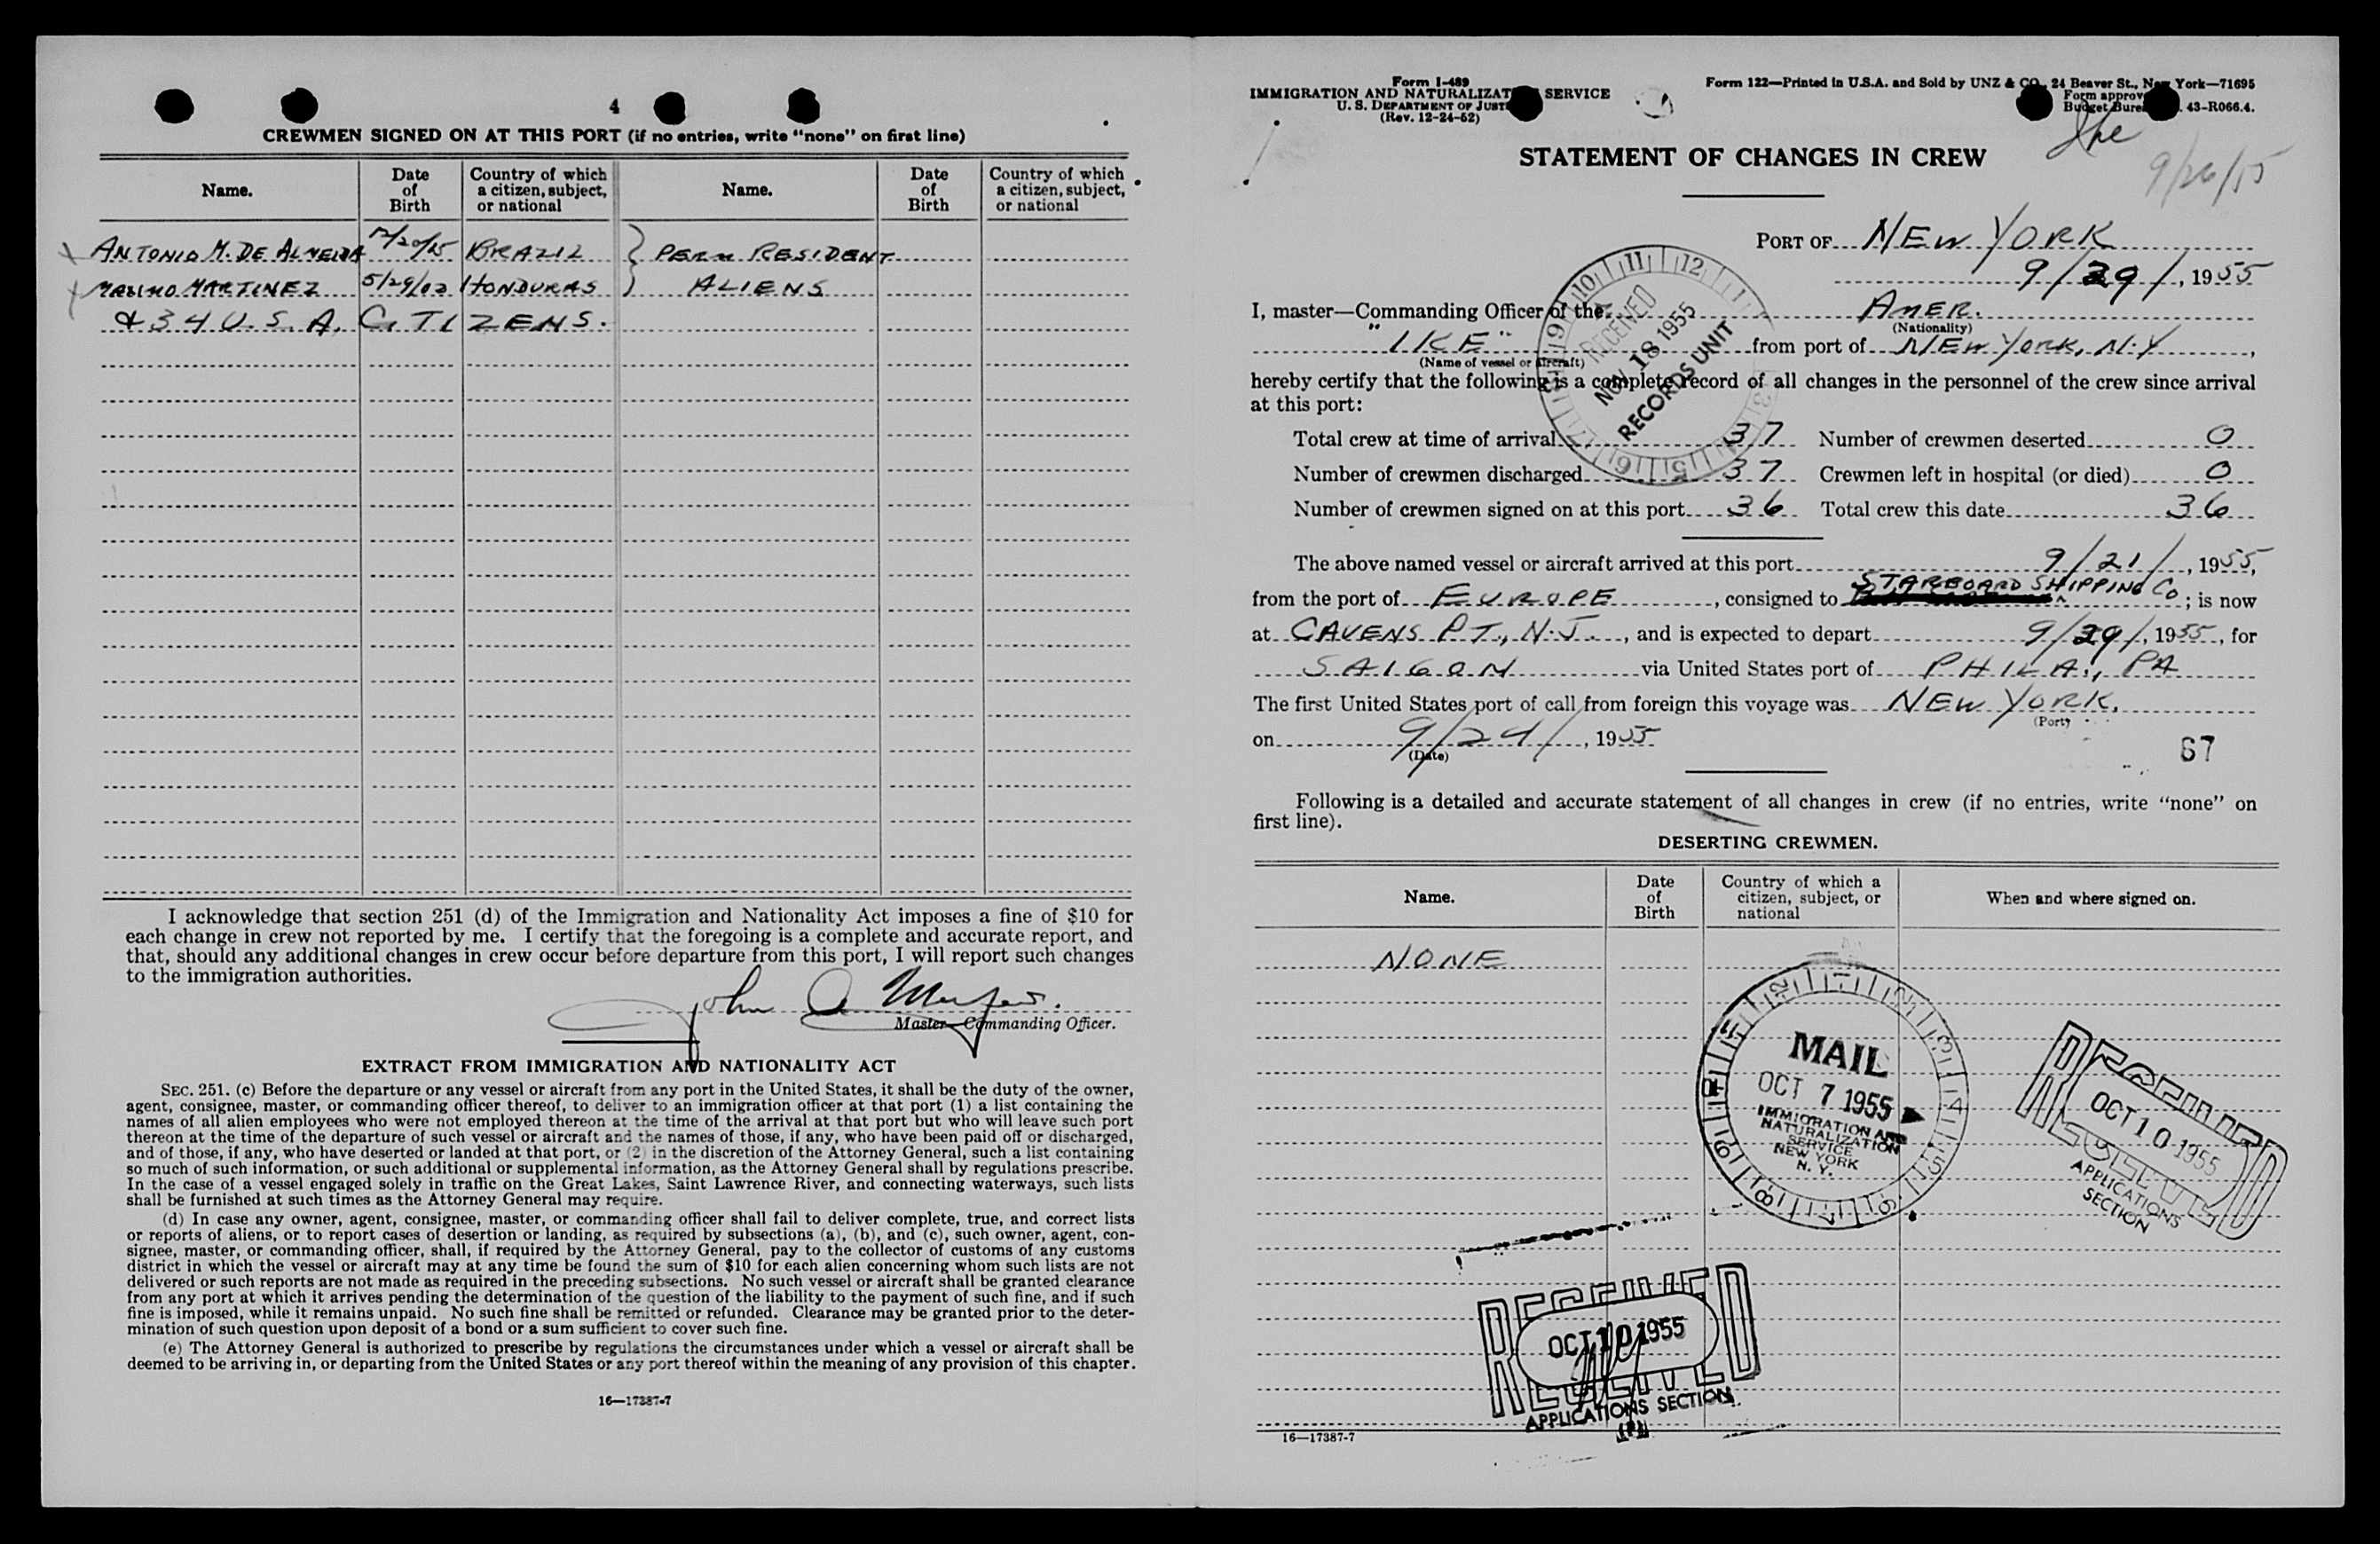 4
CREWMEN SIGNED ON AT THIS PORT (if no entries, write "none" on first line)
Name. Date of Birth Country of which a citizen, subject, or national Name. Date of Birth Country of which a citizen, subject, or national
ANTONIO M. DE ALMEIDA BRAZIL } PERM RESIDENT
MARTINEZ HONDURAS ALIENS
& 34 U. S. A. CITIZENS.
I acknowledge that section 251 (d) of the Immigration and Nationality Act imposes a fine of $10 for
each change in crew not reported by me. I certify that the foregoing is a complete and accurate report, and
that, should any additional changes in crew occur before departure from this port, I will report such changes
to the immigration authorities.
John A
Master—Commanding Officer.
EXTRACT FROM IMMIGRATION AND NATIONALITY ACT
SEC. 251. (c) Before the departure or any vessel or aircraft from any port in the United States, it shall be the duty of the owner,
agent, consignee, master, or commanding officer thereof, to deliver to an immigration officer at that port (1) a list containing the
names of all alien employees who were not employed thereon at the time of the arrival at that port but who will leave such port
thereon at the time of the departure of such vessel or aircraft and the names of those, if any, who have been paid off or discharged,
and of those, if any, who have deserted or landed at that port, or (2) in the discretion of the Attorney General, such a list containing
so much of such information, or such additional or supplemental information, as the Attorney General shall by regulations prescribe.
In the case of a vessel engaged solely in traffic on the Great Lakes, Saint Lawrence River, and connecting waterways, such lists
shall be furnished at such times as the Attorney General may require.
(d) In case any owner, agent, consignee, master, or commanding officer shall fail to deliver complete, true, and correct lists
or reports of aliens, or to report cases of desertion or landing, as required by subsections (a), (b), and (c), such owner, agent, con-
signee, master, or commanding officer, shall, if required by the Attorney General, pay to the collector of customs of any customs
district in which the vessel or aircraft may at any time be found the sum of $10 for each alien concerning whom such lists are not
delivered or such reports are not made as required in the preceding subsections. No such vessel or aircraft shall be granted clearance
from any port at which it arrives pending the determination of the question of the liability to the payment of such fine, and if such
fine is imposed, while it remains unpaid. No such fine shall be remitted or refunded. Clearance may be granted prior to the deter-
mination of such question upon deposit of a bond or a sum sufficient to cover such fine.
(e) The Attorney General is authorized to prescribe by regulations the circumstances under which a vessel or aircraft shall be
deemed to be arriving in, or departing from the United States or any port thereof within the meaning of any provision of this chapter.
16—17387-7
Form I-489
IMMIGRATION AND NATURALIZAT SERVICE
U. S. DEPARTMENT OF JUST
(Rev. 12-24-52)
Form 122—Printed in U.S.A. and Sold by UNZ & CO., 24 Beaver St., New York—71695
Form approv
Budget Bure 43-R066.4.
9/26/55
STATEMENT OF CHANGES IN CREW
PORT OF NEW YORK
9/29/, 1955
I, master—Commanding Officer of the AMER.
(Nationality)
"IKE" from port of NEW YORK, N.Y.,
(Name of vessel or aircraft)
hereby certify that the following is a complete record of all changes in the personnel of the crew since arrival
at this port:
RECEIVED
NOV 18 1955
RECORDS UNIT
Total crew at time of arrival 37 Number of crewmen deserted 0
Number of crewmen discharged 37 Crewmen left in hospital (or died) 0
Number of crewmen signed on at this port 36 Total crew this date 36
The above named vessel or aircraft arrived at this port 9/21/, 1955,
from the port of EUROPE, consigned to STARBOARD SHIPPING Co; is now
at CAVENS PT., N.J., and is expected to depart 9/29/, 1955, for
SAIGON via United States port of PHILA., PA
The first United States port of call from foreign this voyage was NEW YORK.
(Port)
on 9/24/, 1955
(Date)
67
Following is a detailed and accurate statement of all changes in crew (if no entries, write "none" on
first line).
DESERTING CREWMEN.
Name. Date of Birth Country of which a citizen, subject, or national When and where signed on.
NONE
MAIL
OCT 7 1955
IMMIGRATION AND
NATURALIZATION
SERVICE
NEW YORK
N. Y.
RECEIVED
OCT 10 1955
RECEIVED
APPLICATIONS
SECTION
RECEIVED
OCT 10 1955
RECEIVED
APPLICATIONS SECTION
16—17387-7